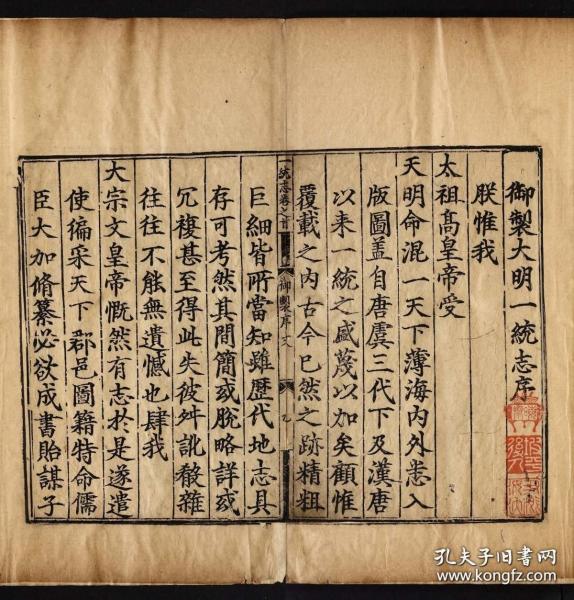 御製大明一統志序
朕惟我
太祖高皇帝受
天明命混一天下薄海内外悉入
版圖盖自唐虞三代下及漢唐
以来一統之盛蔑以加矣顧惟
覆載之内古今已然之跡精粗
一統志卷之首
御製序文
巨細皆所當知雖歷代地志具
存可考然其間簡或脫略詳或
冗複甚至得此失彼舛訛殽雜
往往不能無遺憾也肆我
太宗文皇帝慨然有志於是遂遣
使徧采天下郡邑圖籍特命儒
臣大加脩纂必欲成書貽謀子
孔夫子旧书网
www.kongfz.com